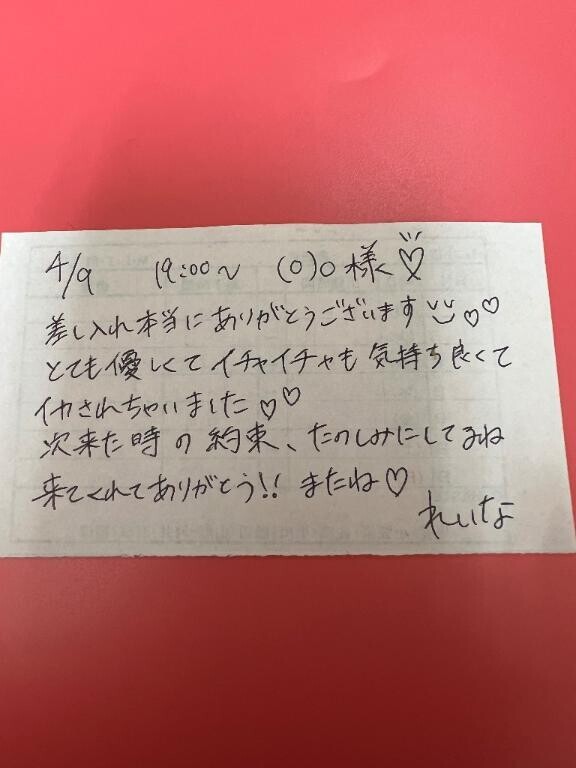 4/9 19:00〜 (o)o 様♡
差し入れ本当にありがとうございます♡♡
とても優しくてイチャイチャも気持ち良くて
イカされちゃいました♡♡
次来た時の約束、たのしみにしてるね
来てくれてありがとう!! またね♡
れいな